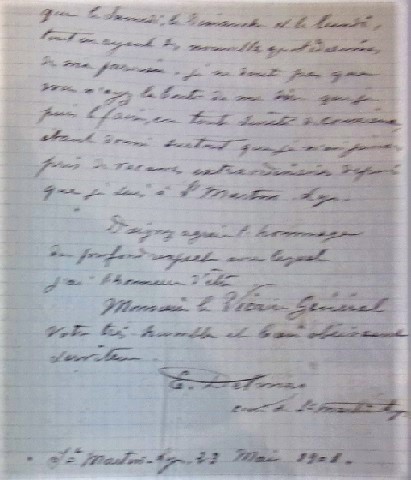 que le Samedi, le Dimanche et le Lundi,
tout moyen de
de ma paroisse. je ne doute pas que
vous n'ayez la bonté de me dire que je
puis le faire, en toute de conscience,
étant donné surtout que je n'ai jamais
pris de vacances extraordinaires depuis
que je suis à St Martin-
Daignez agréer l'hommage
du profond respect avec lequel
j'ai l'honneur d'être
Monsieur le Vicaire Général
Votre très humble et tout obéissant
Serviteur.
curé de St Martin
St Martin- 23 Mai